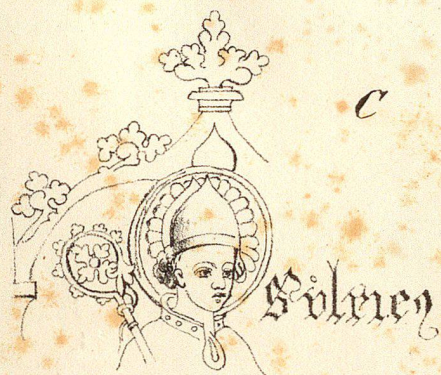 C
S vlricꝯ